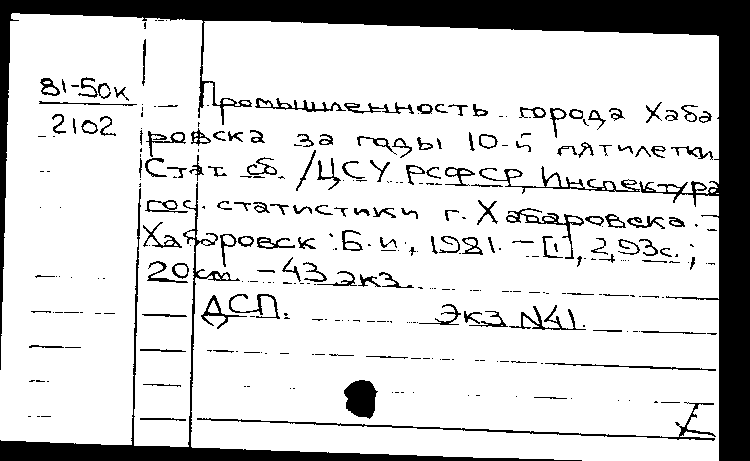 81-50к
2102
Промышленность города Хаба-
ровска за годы 10-й пятилетки
Стат. сб. /ЦСУ РСФСР, Инспектура
гос. статистики г. Хабаровска. -
Хабаровск : Б.и., 1981. - [1], 2, 93с.;
20см. - 43 экз.
ДСП. Экз N41.